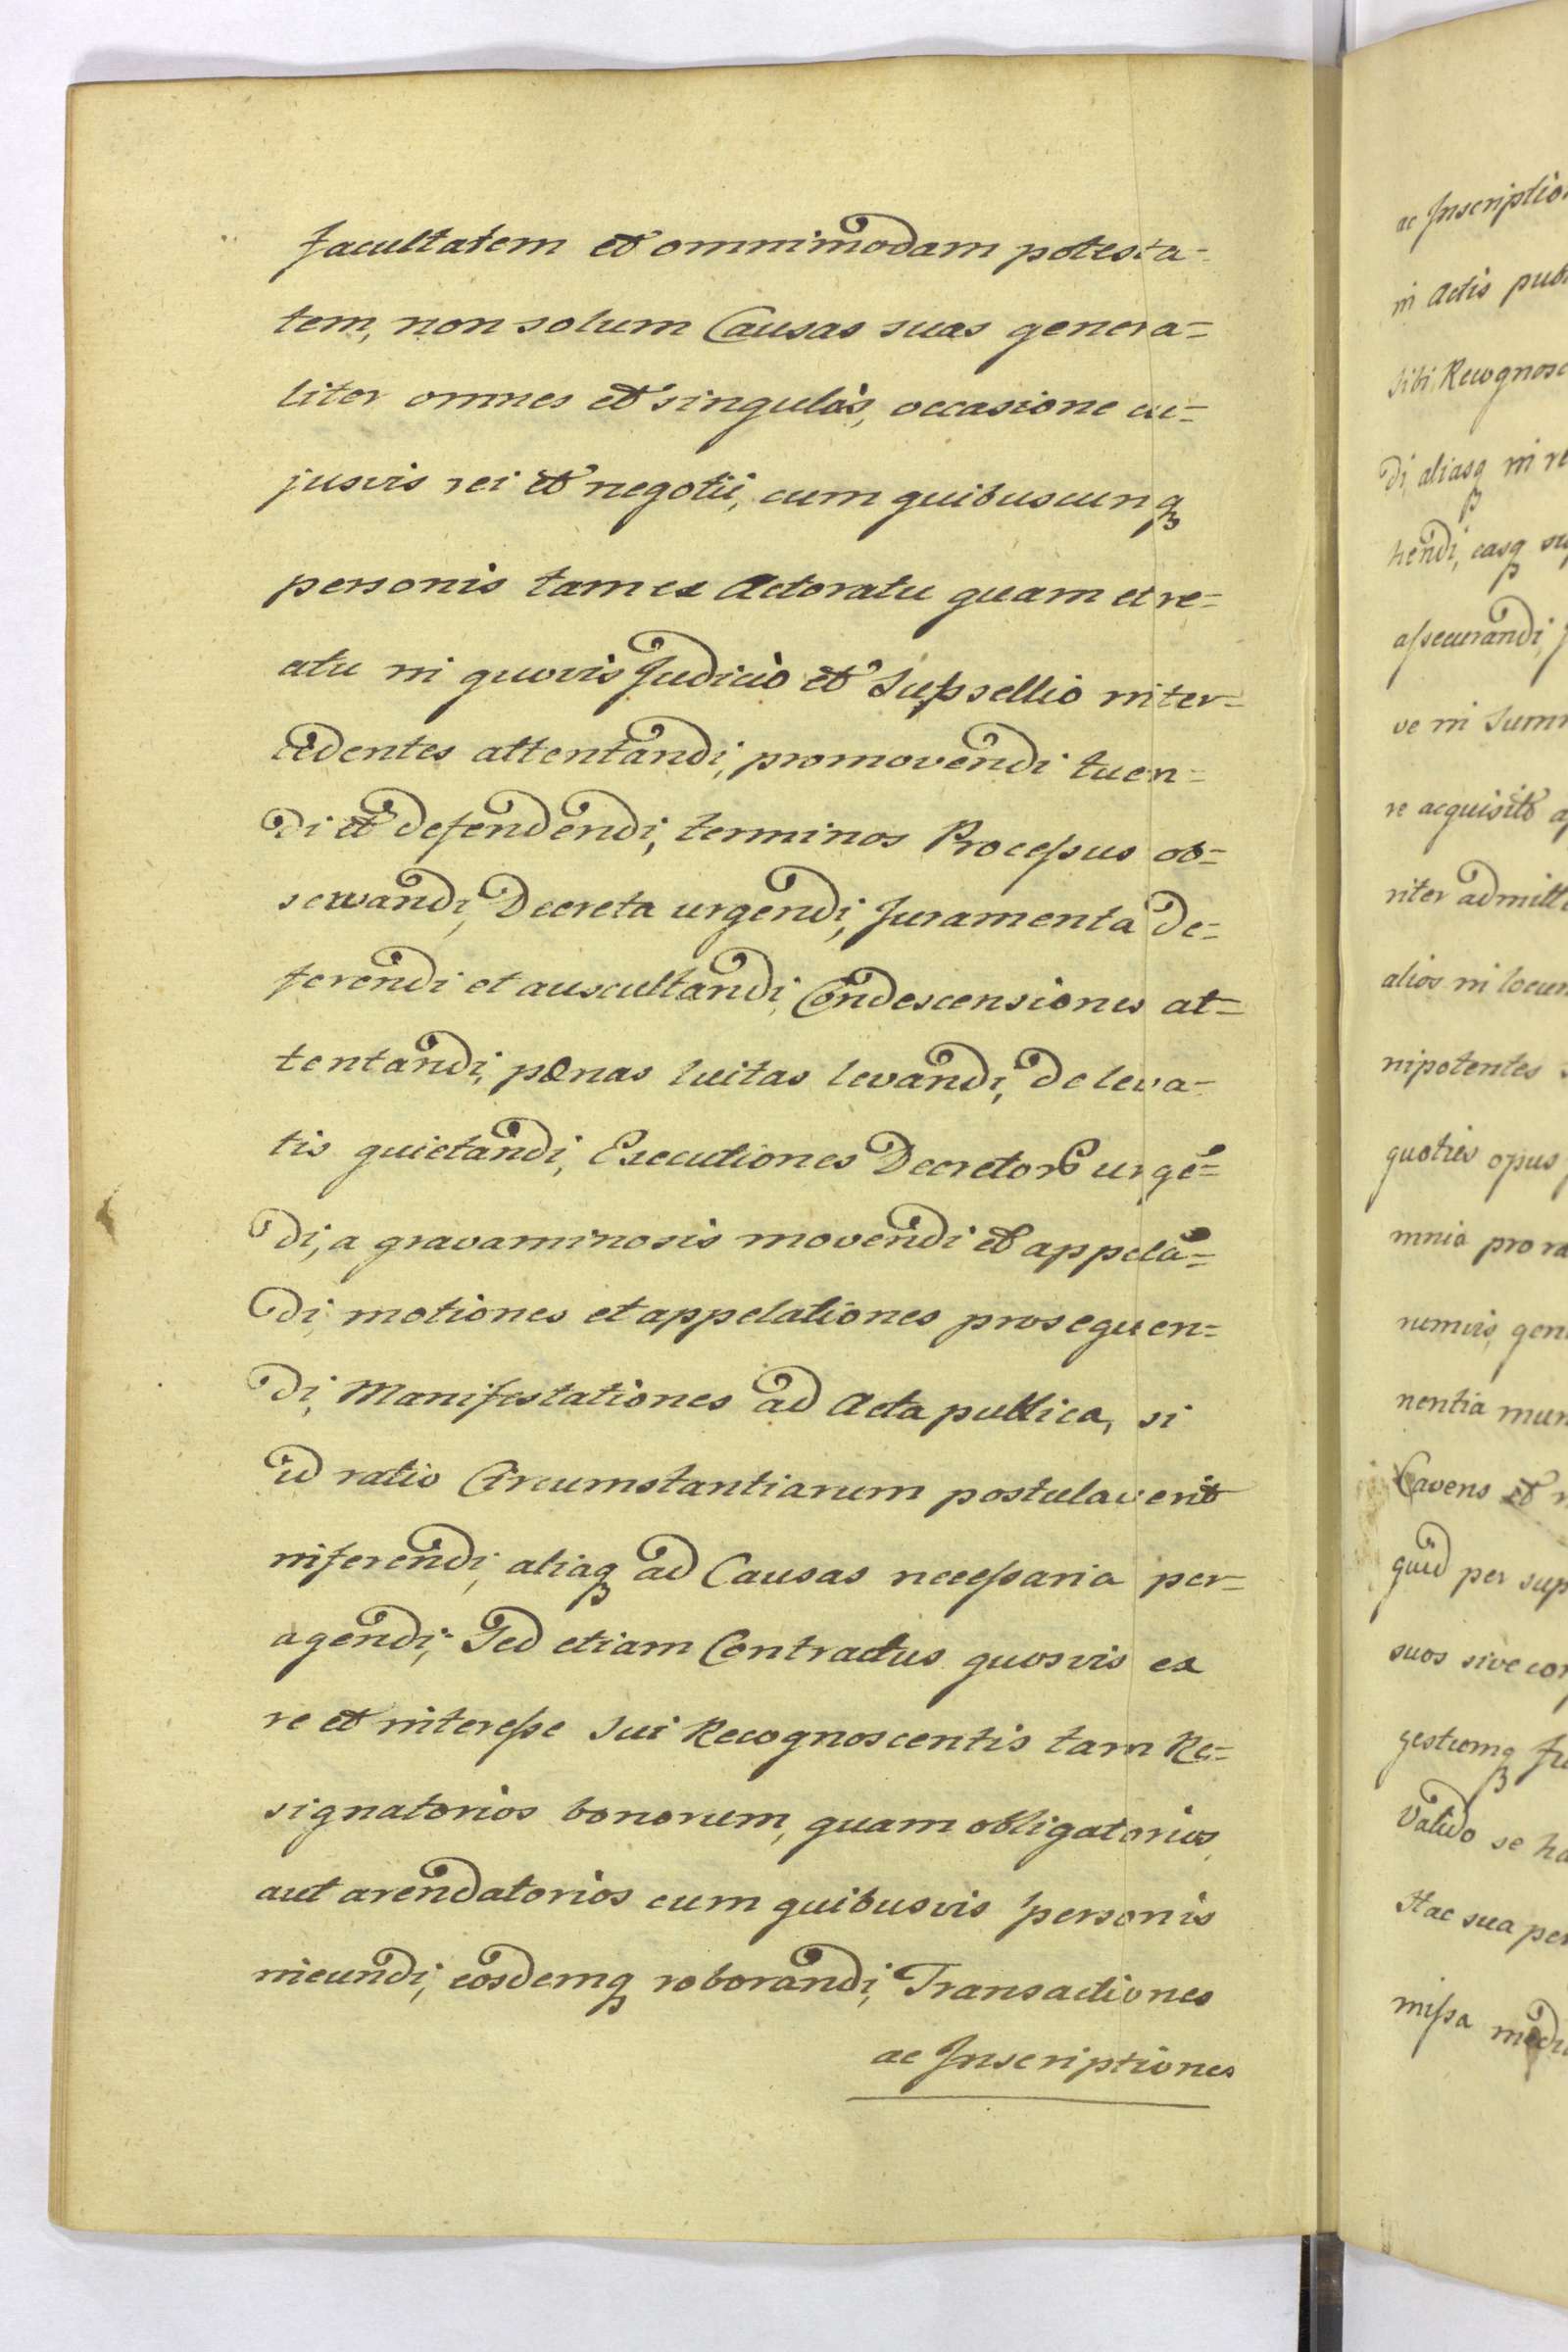 facultatem et omnimodam potesta=
tem, non solum Causas suas genera=
liter omnes et singulas, occasione cu=
jusvis rei et negotii, cum quibuscunq
personis tam ex Actoratu quam et re=
atu in quovis Judicio et Supsellio inter=
cedentes attentandi, promovendi tuen=
di et defendendi, terminos Processus ob=
servandi, Decreta urgendi, Juramenta de=
ferendi et auscultandi, Condescensiones at=
tentandi, pœnas luitas levandi, de leva=
tis quietandi, Executiones Decretorū urgē=
di, a gravaminosis movendi et appelā=
di, motiones et appelationes prosequen=
di, Manifestationes ad Acta publica, si
id ratio Circumstantiarum postulaverit
inferendi, aliaq ad Causas necessaria per=
agendi; Sed etiam Contractus quosvis ex
re et interesse sui Recognoscentis tam Re=
signatorios bonorum, quam obligatorios,
aut arendatorios cum quibusvis personis
ineundi, eosdemq roborandi, Transactiones
ac Inscriptiones
ac Inscription
in Actis pub
sibi Recognosc
di, aliasq in re
hendi, easq su
assecurandi,
ve in Sum
re acquisito
riter admitt
alios in locum
nipotentes
quoties opus
mnia pro ra
numvis, gen
nentia mun
Cavens et
quid per sup
suos sive con
gestumq
Valido se ha
Hac sua per
missa